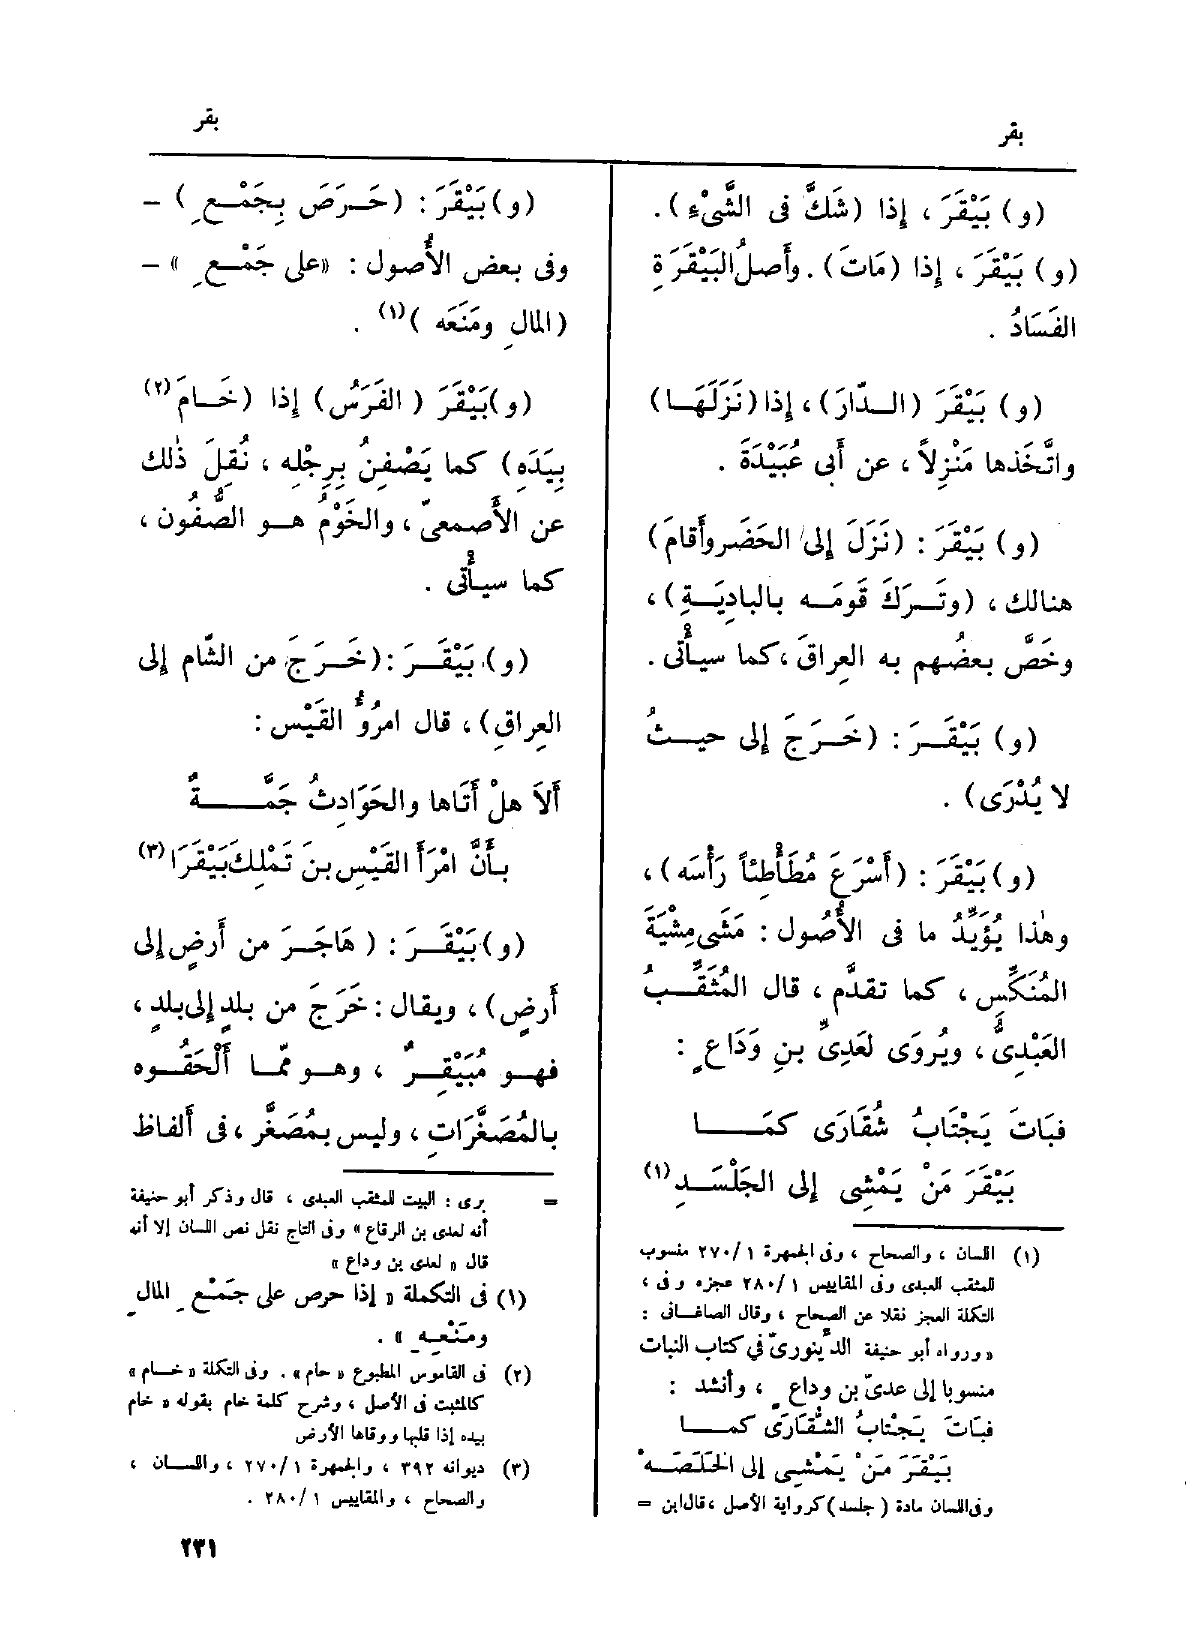 بقر
بقر
(و) بَيْقَرَ ، إذا (شَكَّ فى الشَّىْءِ) .
(و) بَيْقَرَ ، إذا (مَاتَ) . وأَصلُ البَيْقَرَةِ
الفَسَادُ .
(و) بَيْقَرَ (الــدَّارَ) ، إذا (نَزَلَهَــا)
واتَّخَذها مَنْزِلاً ، عن أبى عُبَيْدَةَ .
(و) بَيْقَرَ : (نَزَلَ إلى الحَضَر وأَقامَ)
هنالك ، (وتَــرَكَ قَومَــه بالبادِيَــةِ) ،
وخَصَّ بعضُهم به العِراقَ ، كما سيأْتى .
(و) بَيْقَــرَ : (خَــرَجَ إلى حيــثُ
لا يُدْرَى) .
(و) بَيْقَرَ : (أَسْرَعَ مُطَأْطِئاً رَأْسَه) ،
وهٰذا يُؤيِّدُ ما فى الأُصُول : مَشَى مِشْيَةَ
المُنَكِّسِ ، كما تقدَّم ، قال المُثَقِّــبُ
العَبْدِىُّ ، ويُروَى لعَدِىِّ بنِ وَدَاعٍ :
فبَاتَ يَجْتَابُ شُقَارَى كمَــــا
بَيْقَرَ مَنْ يَمْشِى إلى الجَلْسَــدِ (١)
(١) اللسان ، والصحاح ، وفى الجمهرة ١ /٢٧٠ منسوب
للمثقب العبدى وفى المقاييس ١ /٢٨٠ عجزه وفى ،
التكلة العجز نقلا عن الصحاح ، وقال الصاغــانى :
« ورواه أبو حنيفة الدِّينورىّ في كتاب النبات
منسوبا إلى عدىّ بن وداعٍ ، وأنشد :
فبَاتَ يَجْتابُ الشُّقَارَى كمــــا
بَيْقَرَ مَنْ يَمْشِى إلى الخَلَصَــهْ
وفى اللسان مادة (جلسد) كرواية الأصل ، قال ابن =
(و) بَيْقَرَ : (حَــرَصَ بِجَمْــعِ) –
وفى بعض الأُصول : «على جَمْــعِ» –
(المالِ ومَنَعَه) (١) .
(و) بَيْقَرَ (الفَرَسُ) إذا (خَــامَ (٢)
بِيَدَهِ) كما يَصْفِنُ بِرِجْلِه ، نُقِلَ ذٰلك
عن الأَصمعىّ ، والخَوْمُ هــو الصُّفُون ،
كما سيأْتى .
(و) بَيْقَــرَ : (خَــرَجَ من الشّام إلى
العِراقِ) ، قال امرُؤُ القَيْس :
أَلاَ هلْ أَتَاها والحَوَادِثُ جَمَّــــةٌ
بأَنَّ امْرَأَ القَيْسِ بنَ تَمْلِكَ بَيْقَرَا (٣)
(و) بَيْقَــرَ : (هَاجَــرَ من أَرضٍ إلى
أَرضٍ) ، ويقال : خَرَجَ من بلدٍ إلى بلدٍ ،
فهــو مُبَيْقِــرٌ ، وهــو ممّــا أَلْحَقُــوه
بالمُصَغَّرَاتِ ، وليس بمُصَغَّر ، فى أَلفاظ
= برى : البيت للمثقب العبدى ، قال وذكر أبو حنيفة
أنه لعدى بن الرقاع » وفى التاج نقل نص اللسان إلا أنه
قال « لعدى بن وداع »
(١) فى التكملة « إذا حرص على جَمْعِ المالِ
ومَنْعِــهِ » .
(٢) فى القاموس المطبوع « حام » . وفى التكلة « خــام »
كالمثبت فى الأصل ، وشرح كلمة خام بقوله « خام
بيده إذا قلبها ووقاها الأرض
(٣) ديوانه ٣٩٢ ، والجمهرة ١ /٢٧٠ ، واللســان ،
والصحاح ، والمقاييس ١ /٢٨٠ .
٢٣١